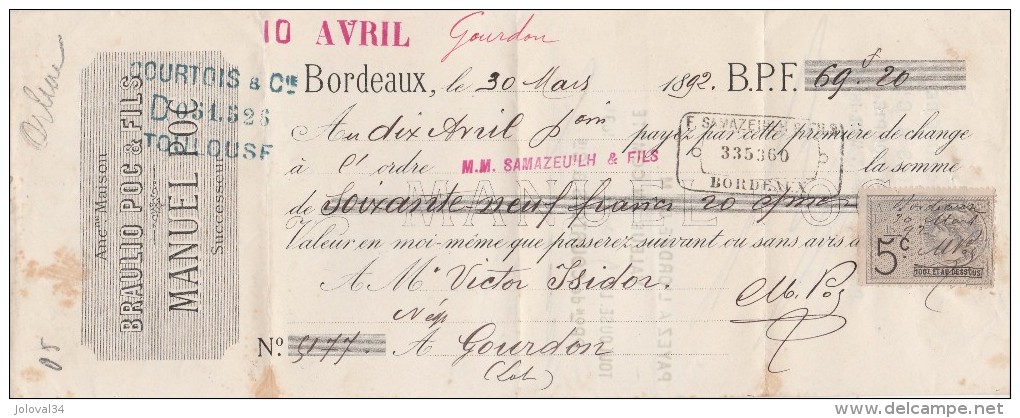 10 AVRIL Gourdon
COURTOIS & Cie
D 51.526
TOULOUSE
Ancne Maison
BRAULIO POC & FILS
MANUEL POC
Successeur
Bordeaux, le 30 Mars 1892. B.P.F. 69f 20
Au dix Avril payez par cette première de change
à l'ordre M.M. SAMAZEUILH & FILS la somme
F. SAMAZEUILH & FILS
335360
BORDEAUX
MANUEL POC
de Soixante neuf francs 20
Valeur en moi-même que passerez suivant ou sans avis
5c
100f ET AU DESSOUS
A Mr Victor Isidor
M. Poc
Négt
No 5177. A Gourdon
(Lot)
joloval34
delcampe.net